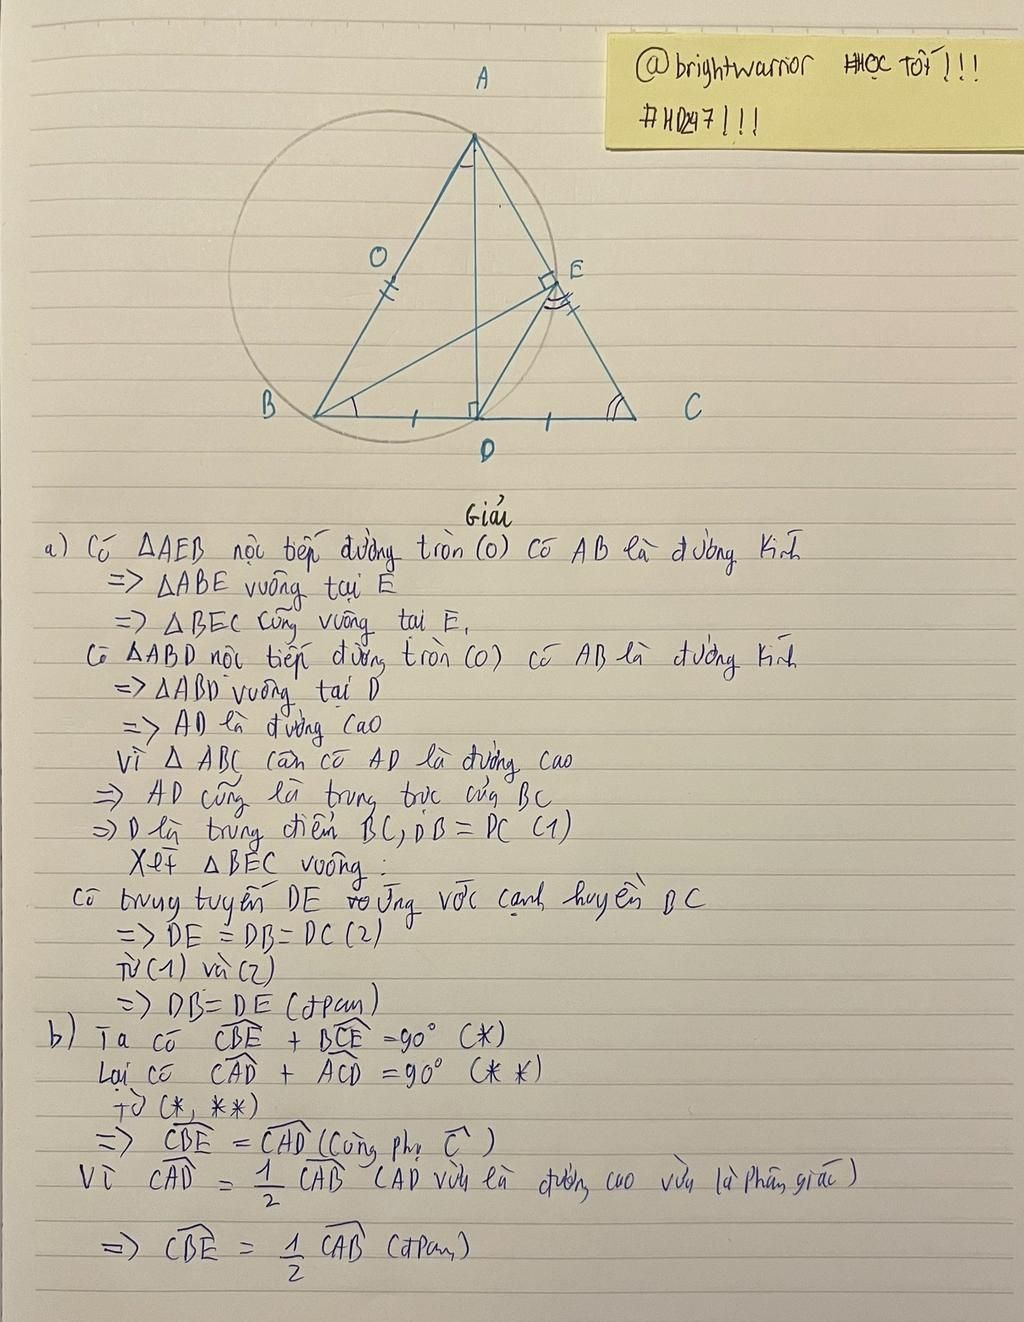 @brightwarrior #HỌC TỐT!!!
#HD247!!!
A
O
E
B
C
D
Giải
a) Có ΔAEB nội tiếp đường tròn (O) có AB là đường kính
=> ΔABE vuông tại E
=> ΔBEC cũng vuông tại E,
Có ΔABD nội tiếp đường tròn (O) có AB là đường kính
=> ΔABD vuông tại D
=> AD là đường cao
Vì Δ ABC cân có AD là đường cao
=> AD cũng là trung trực của BC
=> D là trung điểm BC, DB = DC (1)
Xét ΔBEC vuông:
Có trung tuyến DE ứng với cạnh huyền BC
=> DE = DB = DC (2)
Từ (1) và (2)
=> DB = DE (đpcm)
b) Ta có \widehat{CBE} + \widehat{BCE} = 90° (*)
Lại có \widehat{CAD} + \widehat{ACD} = 90° (**)
Từ (*, **)
=> \widehat{CBE} = \widehat{CAD} (Cùng phụ \widehat{C})
Vì \widehat{CAD} = \frac{1}{2} \widehat{CAB} (AD vừa là đường cao vừa là phân giác)
=> \widehat{CBE} = \frac{1}{2} \widehat{CAB} (đpcm)